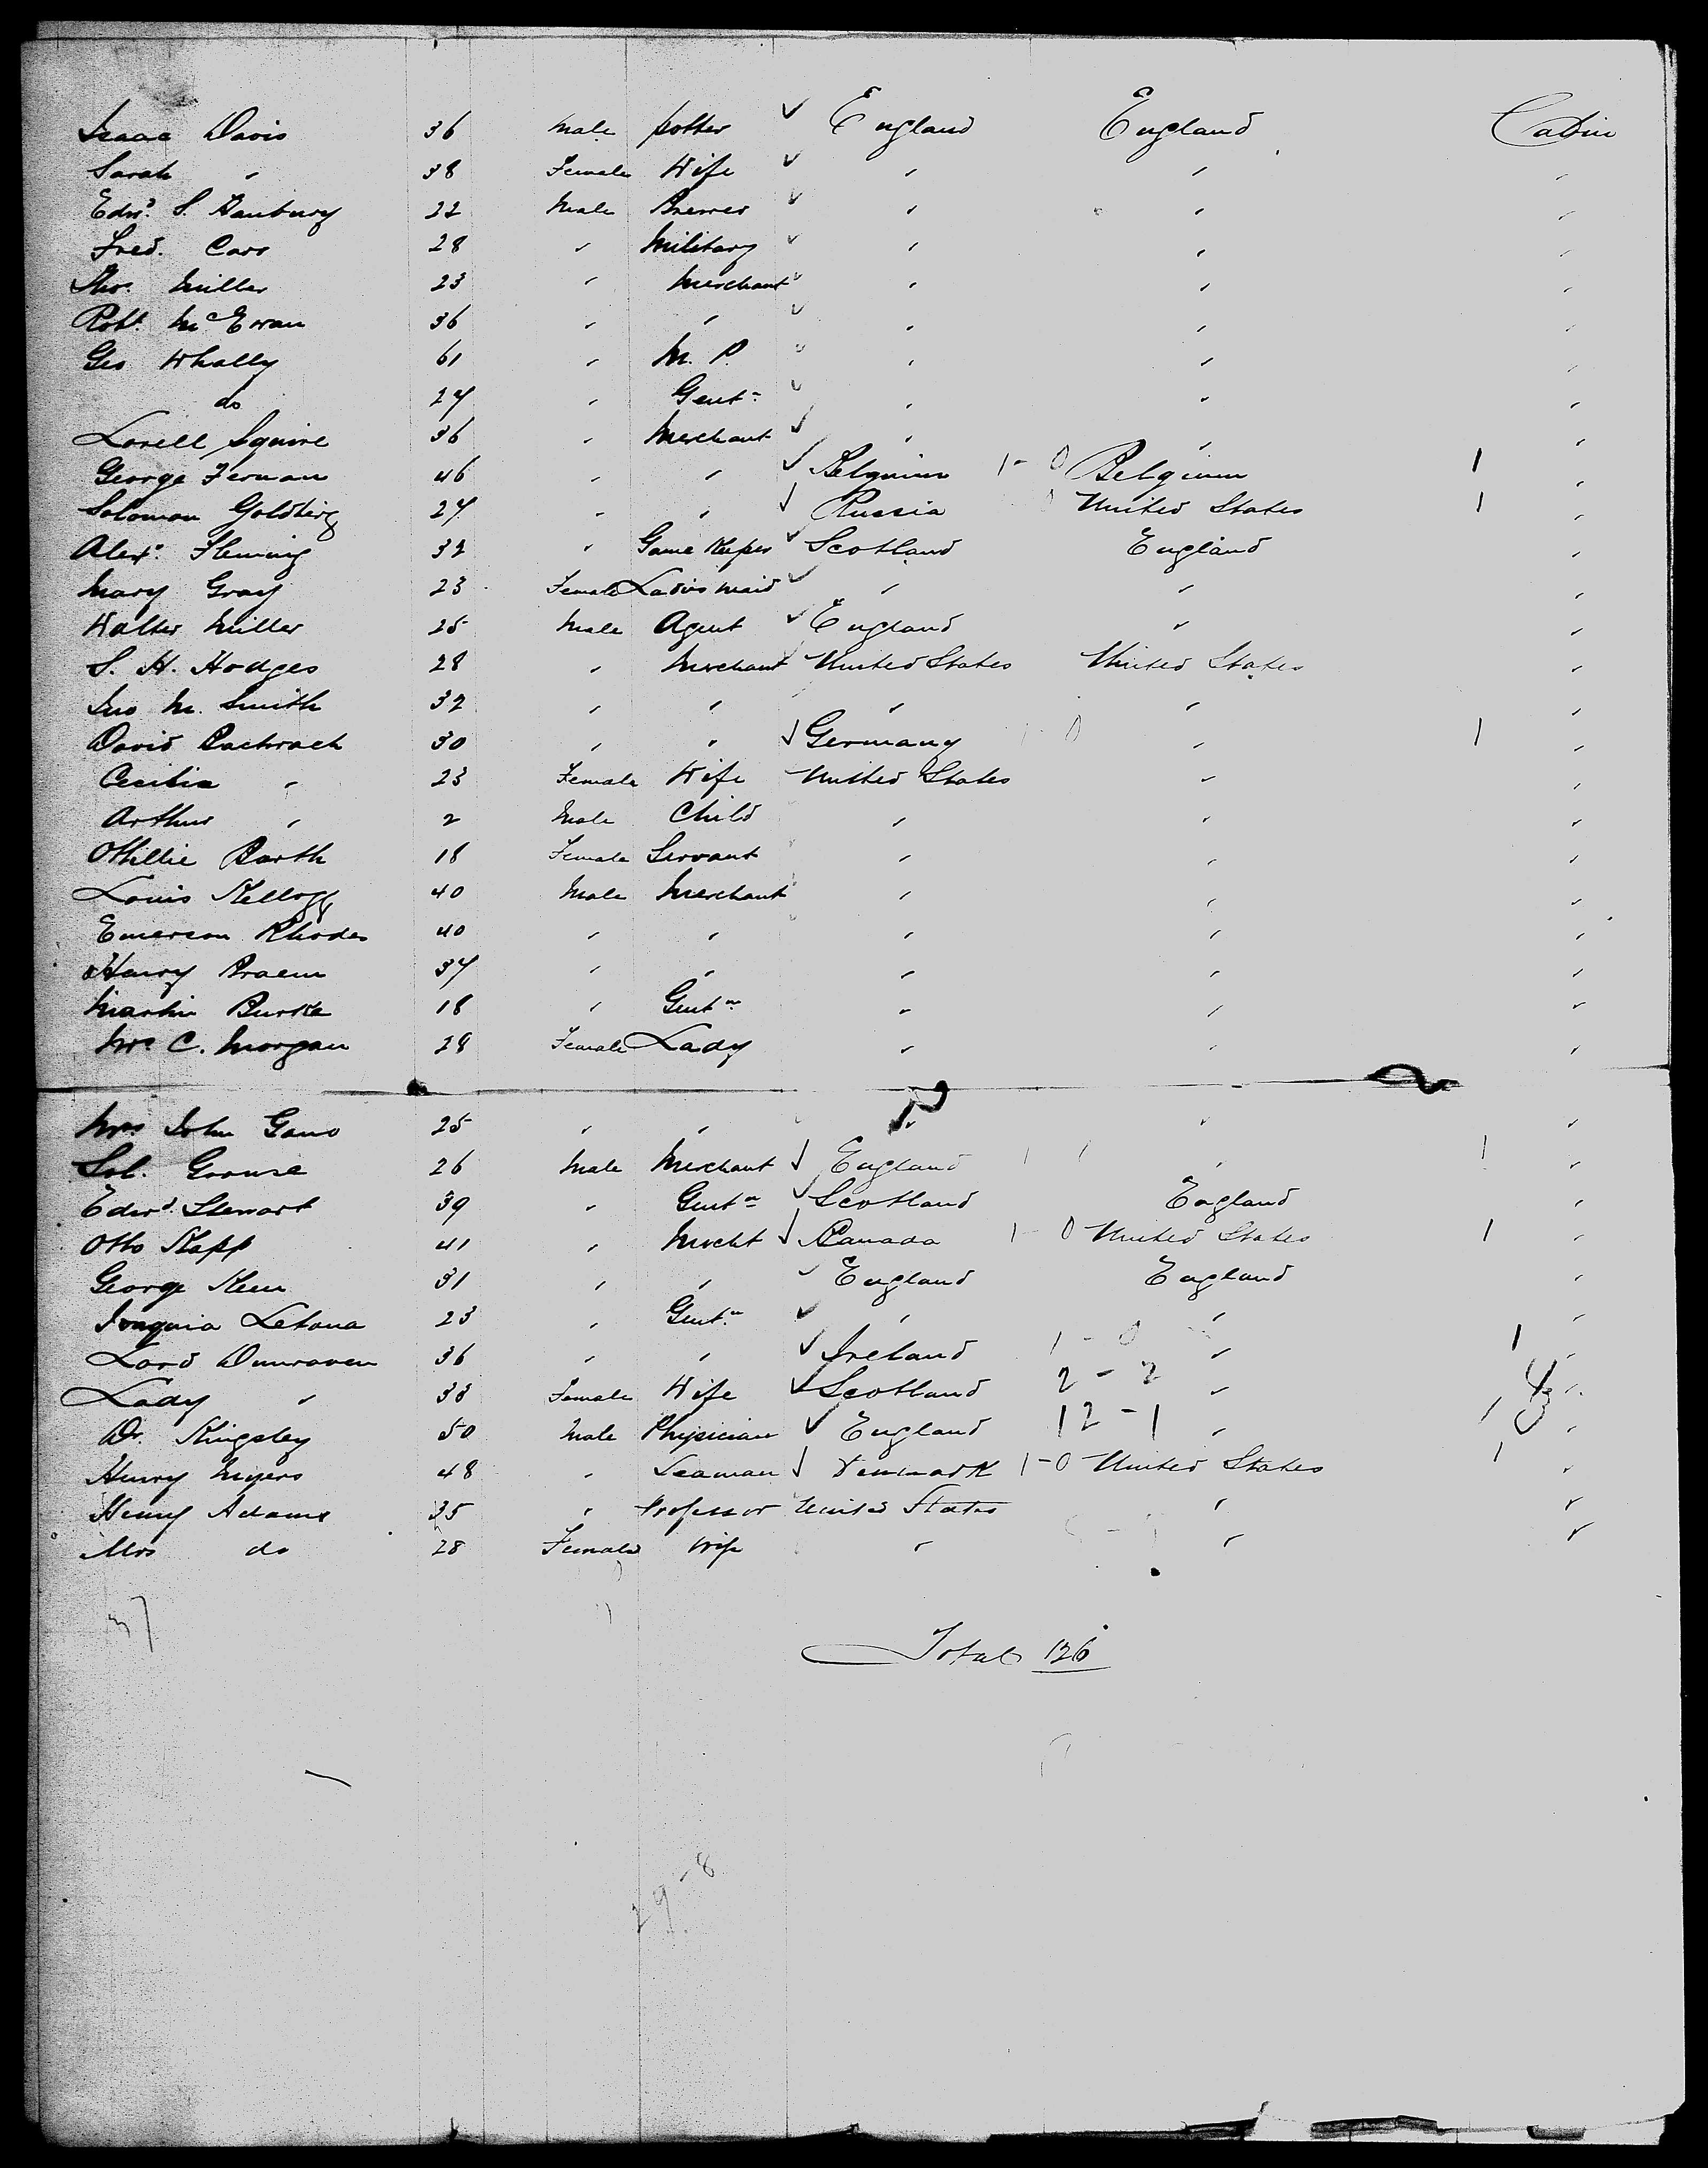 Isaac Davis 36 Male potter ✓ England England Cabin
Sarah " 38 Female Wife ✓ " " "
Edwd. S. Hanbury 22 Male Brewer ✓ " " "
Fred. Carr 28 " Military ✓ " " "
Thos. Miller 23 " Merchant ✓ " " "
Robt. McEwan 36 " " ✓ " " "
Geo Whally 61 " M. P. ✓ " " "
do 27 " Gentn. ✓ " " "
Lovell Squire 36 " Merchant ✓ " " "
George Fernan 46 " " ✓ Belgium 1-0 Belgium 1 "
Solomon Goldberg 27 " " ✓ Russia 0 United States 1 "
Alexr. Fleming 32 " Game Keeper ✓ Scotland England "
Mary Gray 23 Female Ladies maid ✓ " " "
Walter Miller 25 Male Agent ✓ England " "
S. H. Hodges 28 " Merchant United States United States "
Jno M. Smith 32 " " " " "
David Bachrach 30 " " ✓ Germany 1 0 " 1 "
Cecilia " 23 Female Wife United States " "
Arthur " 2 Male Child " " "
Ottillie Barth 18 Female Servant " " "
Louis Kellogg 40 Male Merchant " " "
Emerson Rhodes 40 " " " " "
Henry Braem 37 " " " " "
Martin Burke 18 " Gentn. " " "
Mrs C. Morgan 28 Female Lady " " "
Mrs John Gano 25 " " " " "
Sol. Grouse 26 Male Merchant ✓ England 1 1 " 1 "
Edwd. Stewart 39 " Gentn ✓ Scotland England "
Otto Kapp 41 " Mercht ✓ Canada 1-0 United States 1 "
George Keen 31 " " ✓ England England "
Joaquia Letona 23 " Gentn. ✓ " " "
Lord Dunraven 36 " " ✓ Ireland 1-0 " 1 "
Lady " 33 Female Wife ✓ Scotland 2-2 " 4 "
Dr. Kingsley 50 Male Physician ✓ England 12-1 " 1 "
Henry Myers 48 " Seaman ✓ Denmark 1-0 United States 1 "
Henry Adams 35 " Professor United States " "
Mrs do 28 Female wife " " "
37
Total 126
29-8